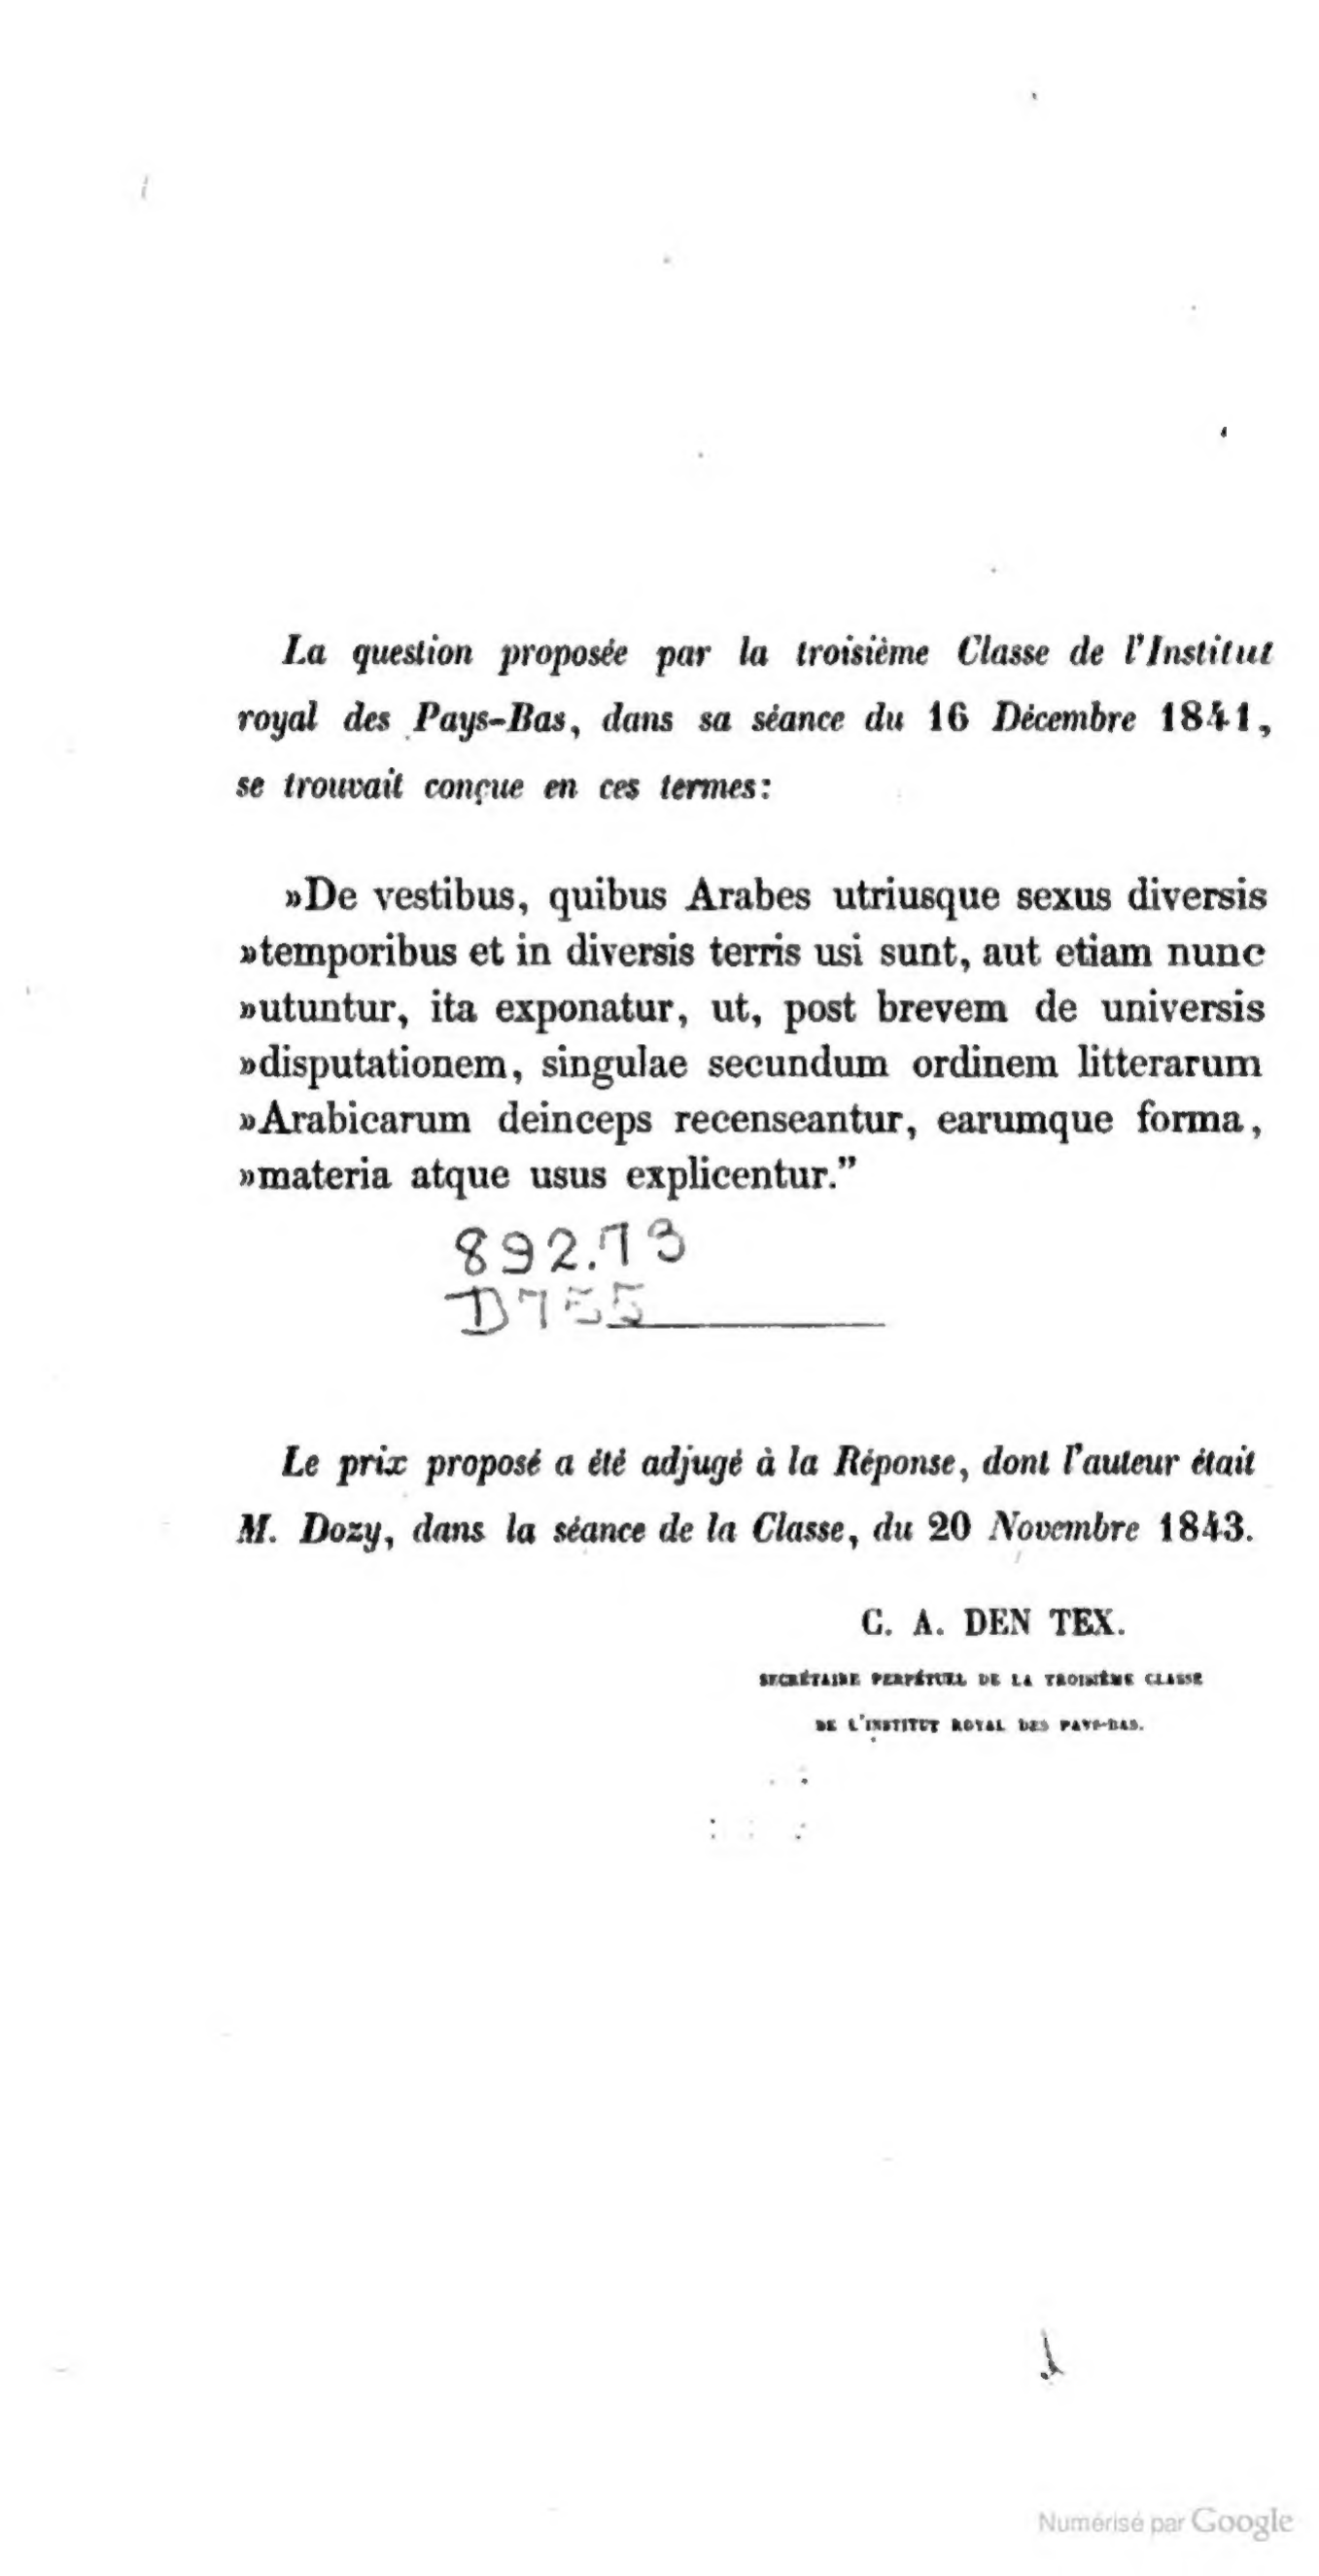 La question proposée par la troisième Classe de l'Institut
royal des Pays-Bas, dans sa séance du 16 Décembre 1841,
se trouvait conçue en ces termes:
»De vestibus, quibus Arabes utriusque sexus diversis
»temporibus et in diversis terris usi sunt, aut etiam nunc
»utuntur, ita exponatur, ut, post brevem de universis
»disputationem, singulae secundum ordinem litterarum
»Arabicarum deinceps recenseantur, earumque forma,
»materia atque usus explicentur.”
892.73
D755
Le prix proposé a été adjugé à la Réponse, dont l'auteur était
M. Dozy, dans la séance de la Classe, du 20 Novembre 1843.
C. A. DEN TEX.
SECRÉTAIRE PERPÉTUEL DE LA TROISIÈME CLASSE
DE L'INSTITUT ROYAL DES PAYS-BAS.
Numérisé par Google